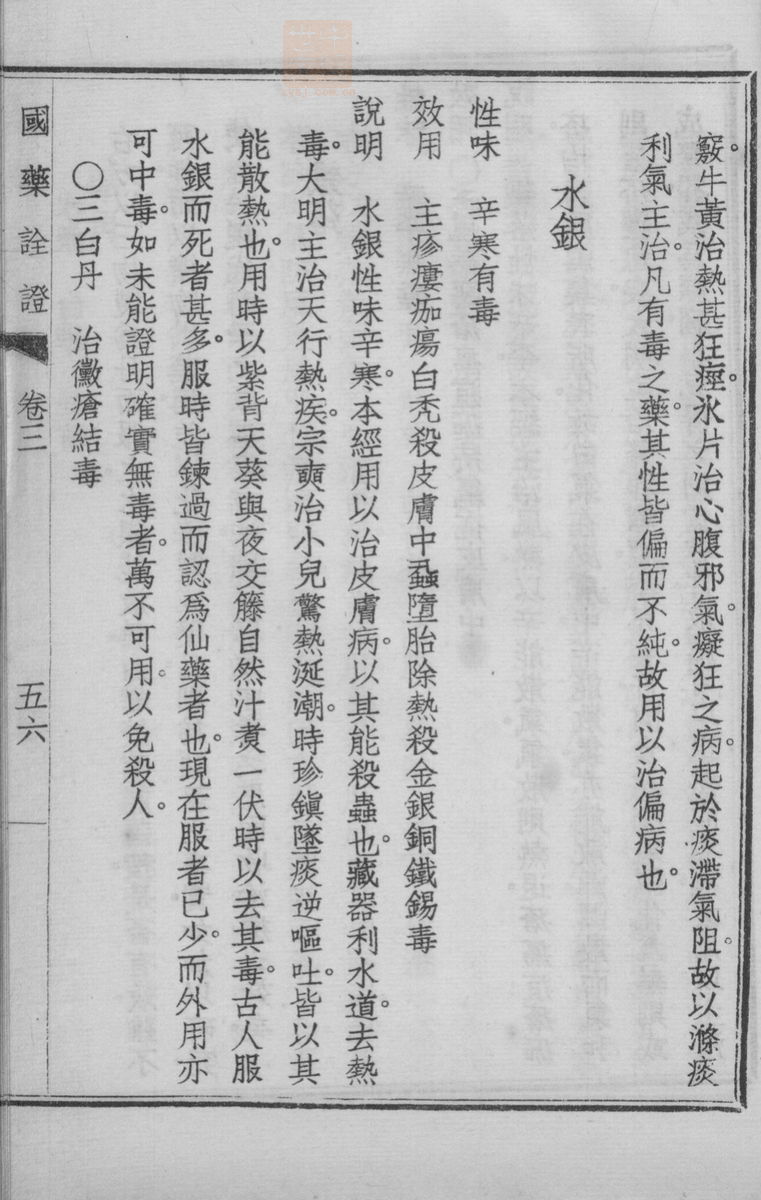 竅。牛黃治熱甚狂痙。氷片治心腹邪氣。癡狂之病。起於痰滯氣阻。故以滌痰
利氣主治。凡有毒之藥。其性皆偏而不純。故用以治偏病也。
水銀
性味　辛寒有毒
效用　主疹瘻痂瘍白禿殺皮膚中蝨墮胎除熱殺金銀銅鐵錫毒
說明　水銀性味辛寒。本經用以治皮膚病。以其能殺蟲也。藏器利水道。去熱
毒。大明主治天行熱疾。宗奭治小兒驚熱涎潮。時珍鎭墜痰逆嘔吐。皆以其
能散熱也。用時以紫背天葵與夜交籐自然汁煑一伏時以去其毒。古人服
水銀而死者甚多。服時皆鍊過而認爲仙藥者也。現在服者已少。而外用亦
可中毒。如未能證明確實無毒者。萬不可用。以免殺人。
〇三白丹　治黴瘡結毒
國藥詮證　卷三　五六